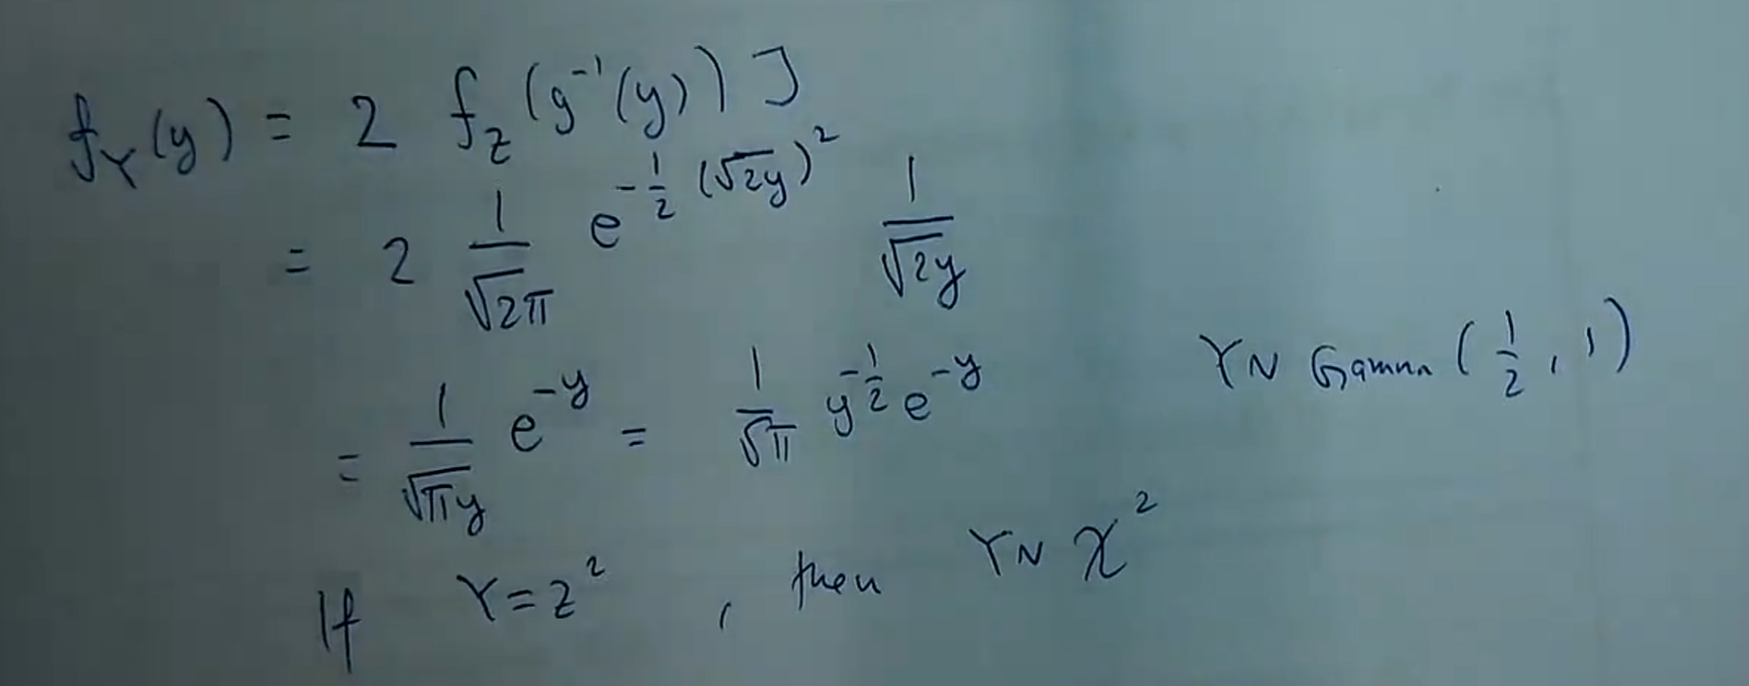 f_Y(y) = 2 f_Z(g⁻¹(y)) J
= 2 1/√2π e^{-1/2 (√2y)²} 1/√2y
= 1/√πy e^{-y} = 1/√π y^{-1/2} e^{-y} Y~ Gamma (1/2, 1)
If Y=Z², then Y~ χ²